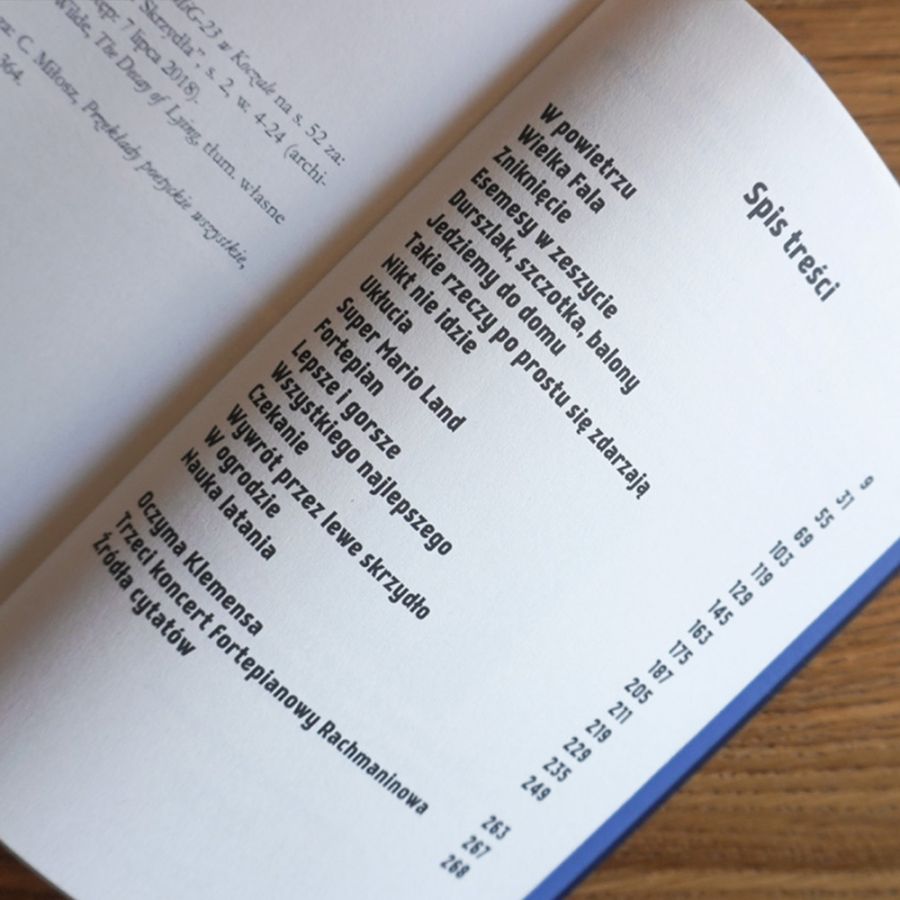 na s. 52 za:
Skrzydła”, s. 2, w. 4-24 (archi-
7 lipca 2018).
Wilde, The Decay of Lying, tłum. własne
C. Miłosz, Przekłady poetyckie wszystkie,
364.
Spis treści
W powietrzu 9
Wielka Fala 31
Zniknięcie 55
Esemesy w zeszycie 69
Durszlak, szczotka, balony 103
Jedziemy do domu 119
Takie rzeczy po prostu się zdarzają 129
Nikt nie idzie 145
Ukłucia 163
Super Mario Land 175
Fortepian 187
Lepsze i gorsze 205
Wszystkiego najlepszego 211
Czekanie 219
Wywrót przez lewe skrzydło 229
W ogrodzie 235
Nauka latania 249
Oczyma Klemensa 263
Trzeci koncert fortepianowy Rachmaninowa 267
Źródła cytatów 268